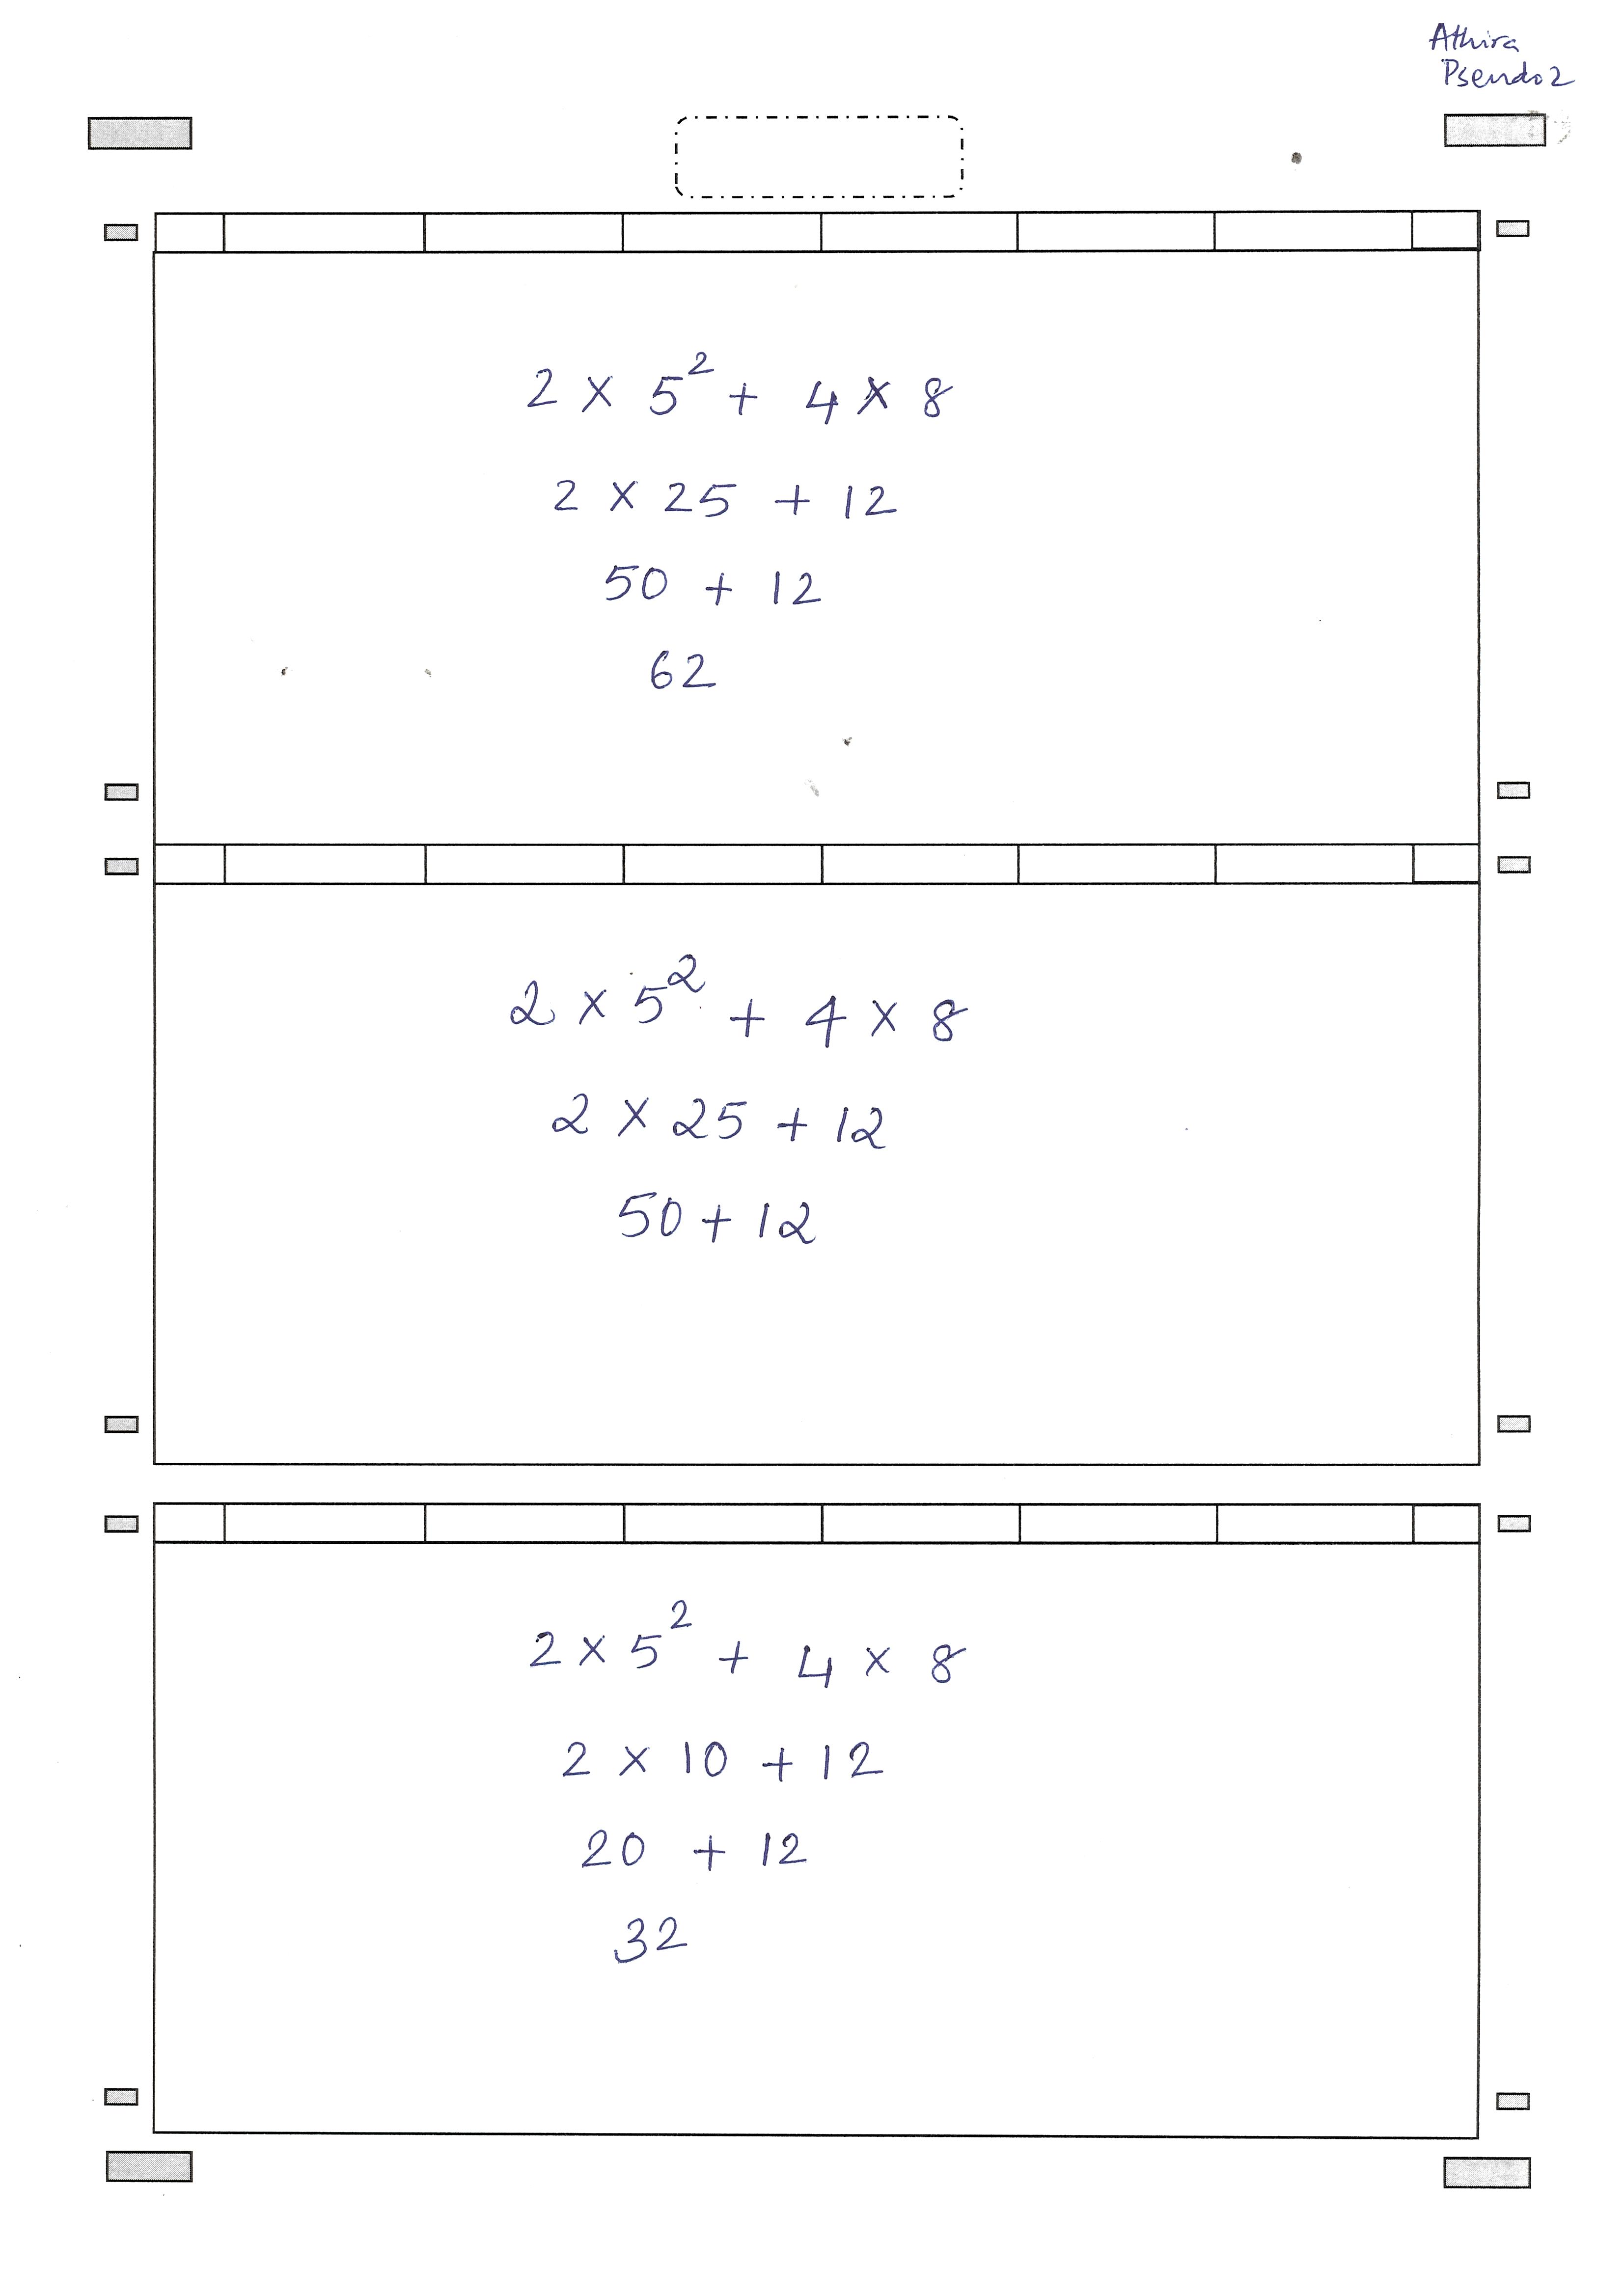 Athira
Pseudo 2
2 × 5² + 4 × 8
2 × 25 + 12
50 + 12
62
2 × 5² + 4 × 8
2 × 25 + 12
50 + 12
2 × 5² + 4 × 8
2 × 10 + 12
20 + 12
32